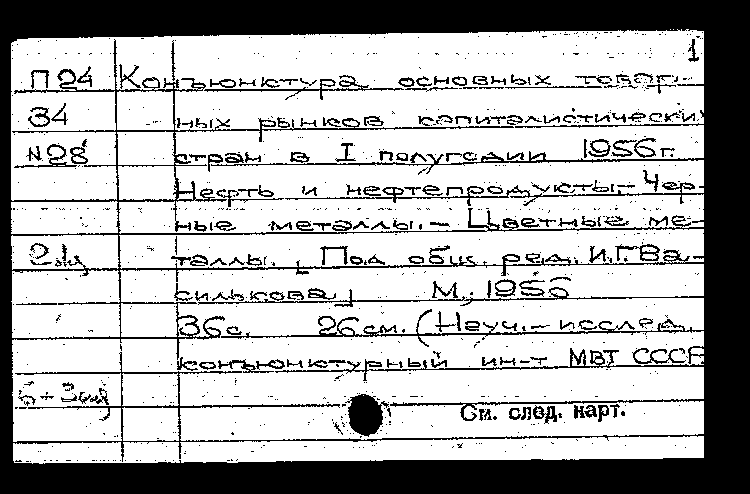 1
П 24 Конъюнктура основных товар-
34 ных рынков капиталистически
N28 стран в I полугодии 1956 г.
Нефть и нефтепродукты.- Чер-
ные металлы. - Цветные ме-
таллы. [Под общ. ред. И.Г.Ва-
силькова] М., 1956
36 с. 26 см. (Науч.-исслед.
конъюнктурный ин-т МВТ СССР
См. след. карт.